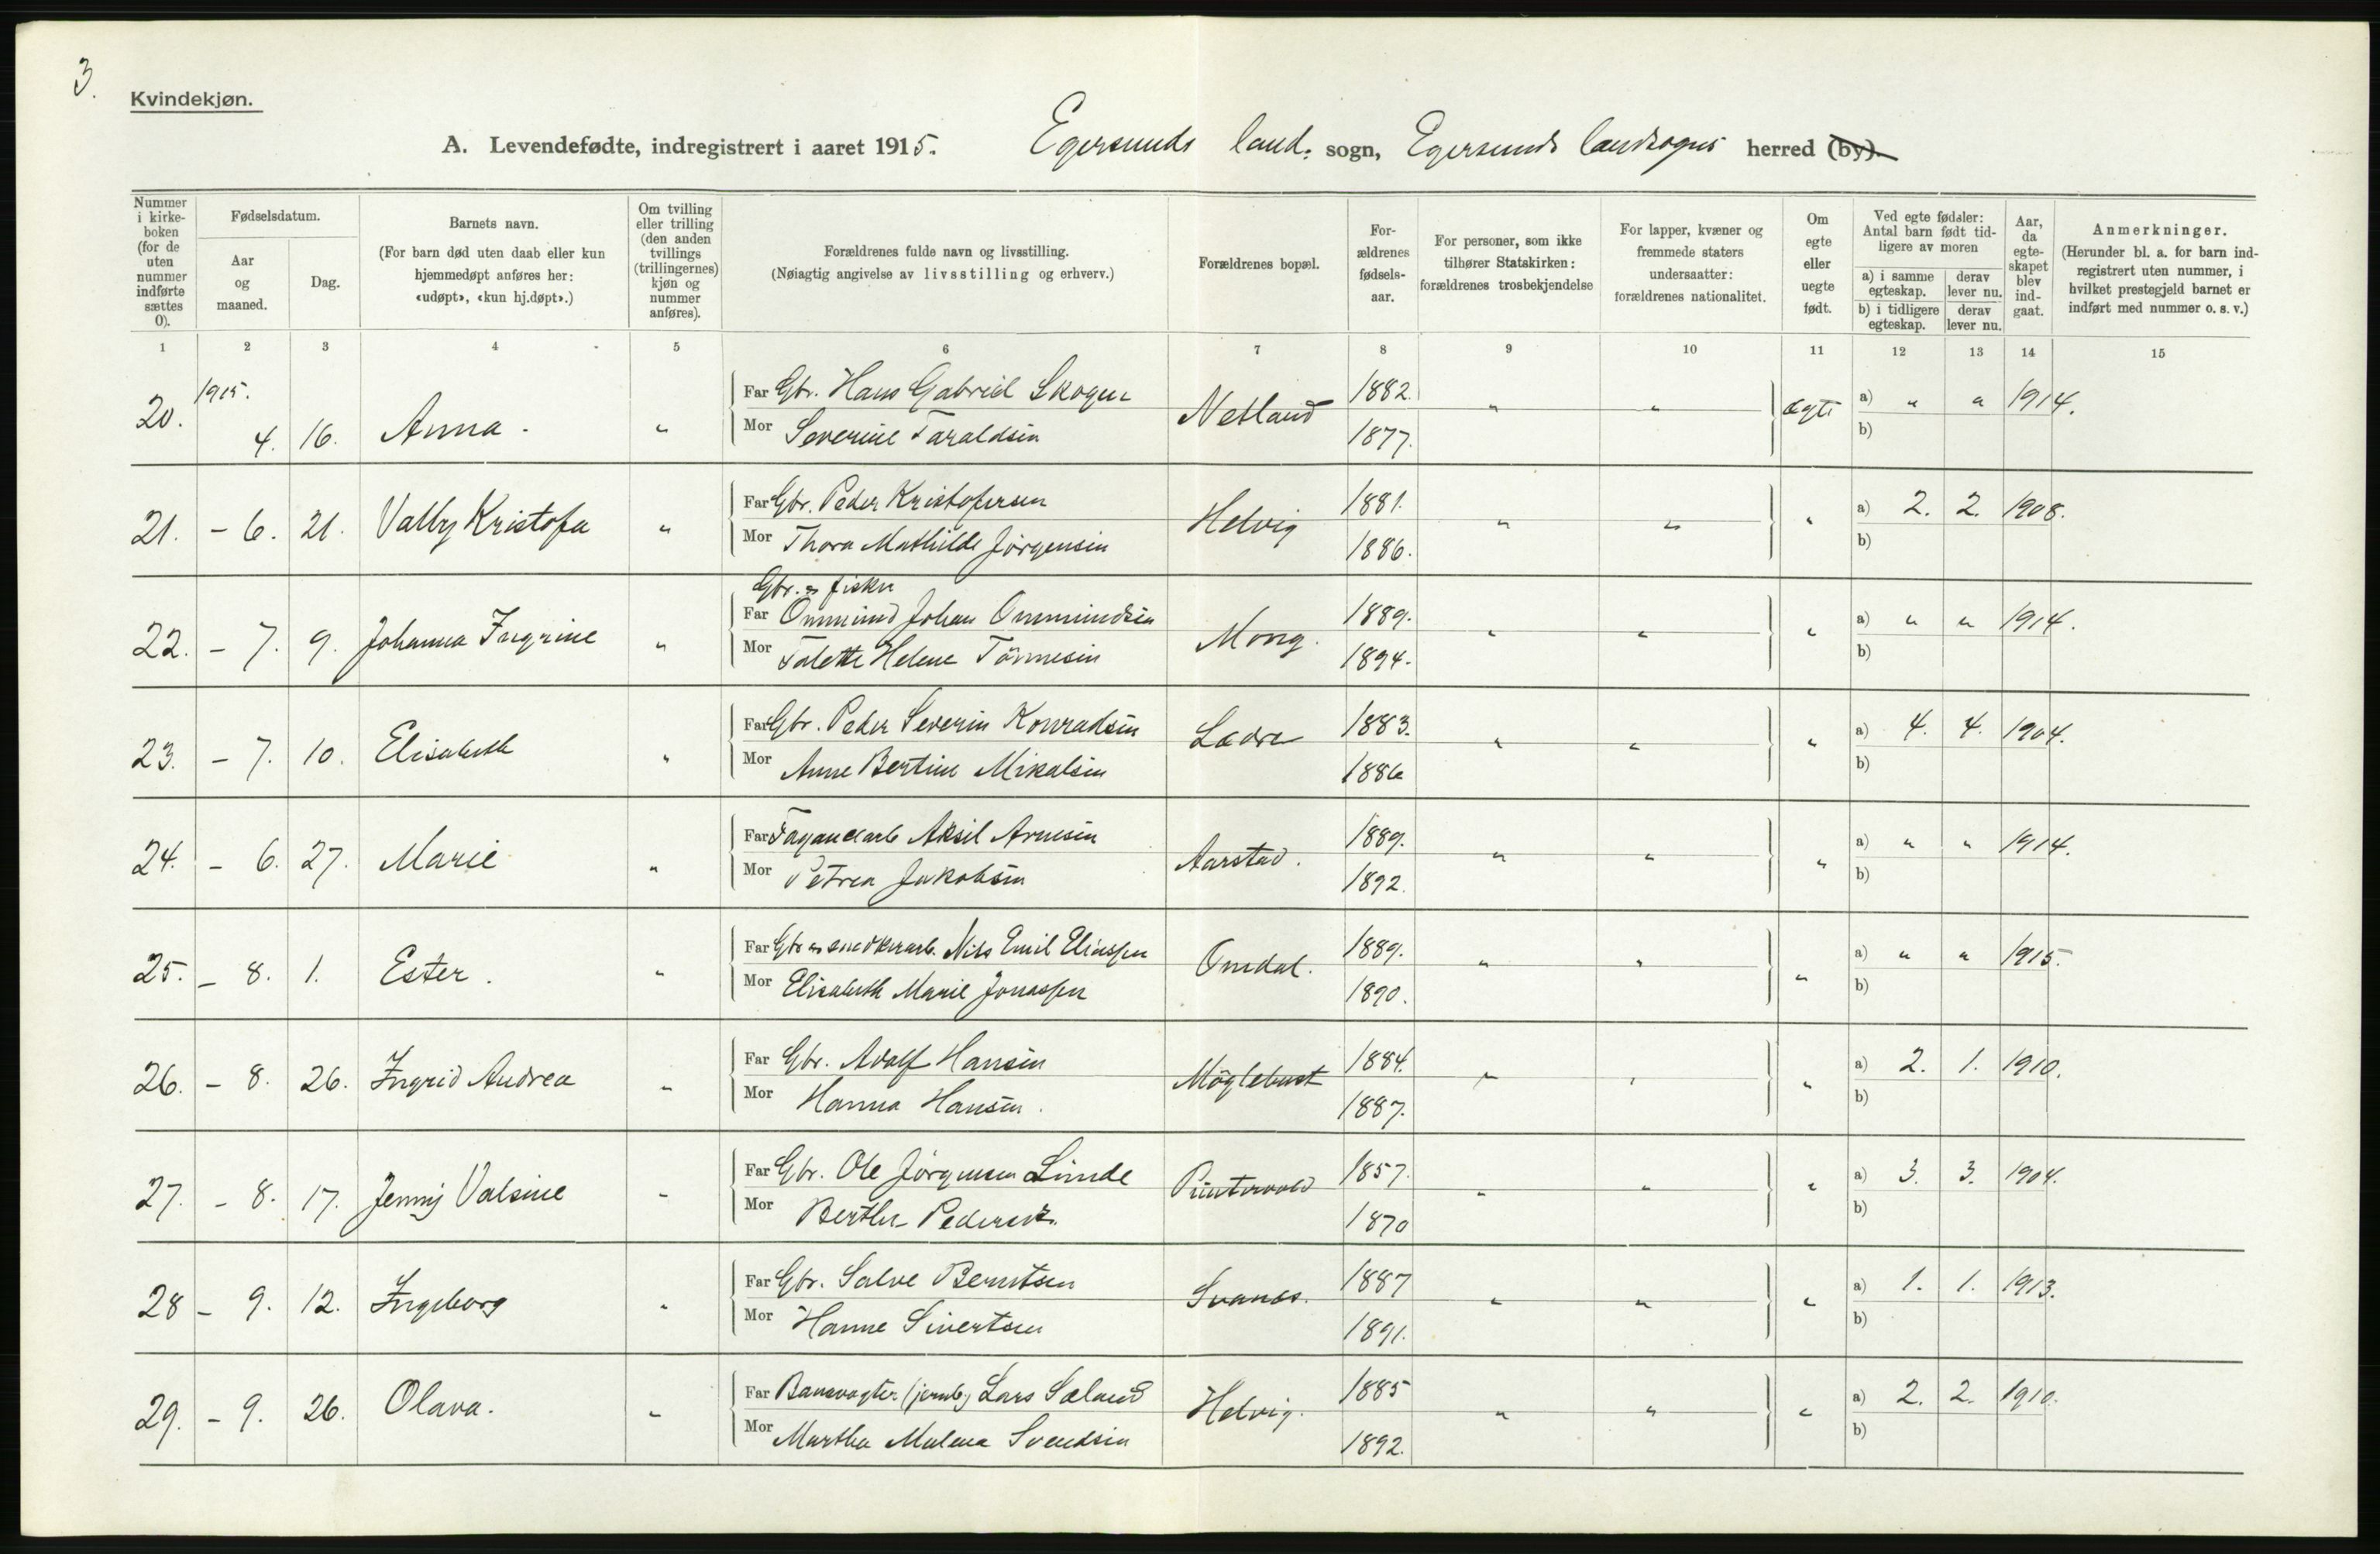 3.
Kvindekjøn.
A. Levendefødte, indregistrert i aaret 1915. Egersunds land. sogn, Egersunds landsogns herred (by).
Nummer i kirkeboken (for de uten nummer indførte sættes 0).
Fødselsdatum.
Aar og maaned.
Dag.
Barnets navn.
(For barn død uten daab eller kun hjemmedøpt anføres her: «udøpt», «kun hj.døpt».)
Om tvilling eller trilling (den anden tvillings (trillingernes) kjøn og nummer anføres).
Forældrenes fulde navn og livsstilling.
(Nøiagtig angivelse av livsstilling og erhverv.)
Forældrenes bopæl.
Forældrenes fødselsaar.
For personer, som ikke tilhører Statskirken: forældrenes trosbekjendelse
For lapper, kvæner og fremmede staters undersaatter: forældrenes nationalitet.
Om egte eller uegte født.
Ved egte fødsler: Antal barn født tidligere av moren
a) i samme egteskap. derav lever nu.
b) i tidligere egteskap. derav lever nu.
Aar, da egteskapet blev indgaat.
Anmerkninger.
(Herunder bl. a. for barn indregistrert uten nummer, i hvilket prestegjeld barnet er indført med nummer o. s. v.)
1 2 3 4 5 6 7 8 9 10 11 12 13 14 15
1915.
20. 4. 16. Anna. " Far Gbr. Hans Gabriel Skogen Netland 1882. " " ægte a) " " 1914.
Mor Severine Taraldsen 1877. b)
21. - 6. 21. Valby Kristofa " Far Gbr. Peder Kristofersen Helvig 1881. " " " a) 2. 2. 1908.
Mor Thora Mathilde Jörgensen 1886. b)
Gbr. og fisker
22. - 7. 9. Johanna Ingrine " Far Ommund Johan Ommundsen Mong. 1889. " " " a) " " 1914.
Mor Talette Helene Tönnesen 1894. b)
23. - 7. 10. Elisabeth " Far Gbr. Peder Severin Konradsen 1883. " " " a) 4. 4. 1904.
Mor Anne Bertine Mikalsen 1886 b)
24. - 6. 27. Marie " Far Aksil Arnesen Aarstad. 1889. " " " a) " " 1914.
Mor Petrea Jakobsen 1892. b)
25. - 8. 1. Ester. " Far Gbr og snedkerarb. Nils Emil Eliassen Omdal. 1889. " " " a) " " 1915.
Mor Elisabeth Marie Jonassen 1890. b)
26. - 8. 26. Ingrid Andrea " Far Gbr. Adolf Hansen Möglebust 1884. " " " a) 2. 1. 1910.
Mor Hanna Hansen. 1887. b)
27. - 8. 17. Jenny Valsine " Far Gbr. Ole Jörgensen Linde 1857. " " " a) 3. 3. 1904.
Mor Berthe Pedersen. 1870 b)
28 - 9. 12. Ingeborg " Far Gbr. Salve Berntsen Svanes. 1887 " " " a) 1. 1. 1913.
Mor Hanne Sivertsen 1891. b)
29. - 9. 26. Olava. " Far Banevogter (jernb.) Lars Sæland Helvig. 1885 " " " a) 2. 2. 1910.
Mor Martha Malena Svendsen 1892. b)